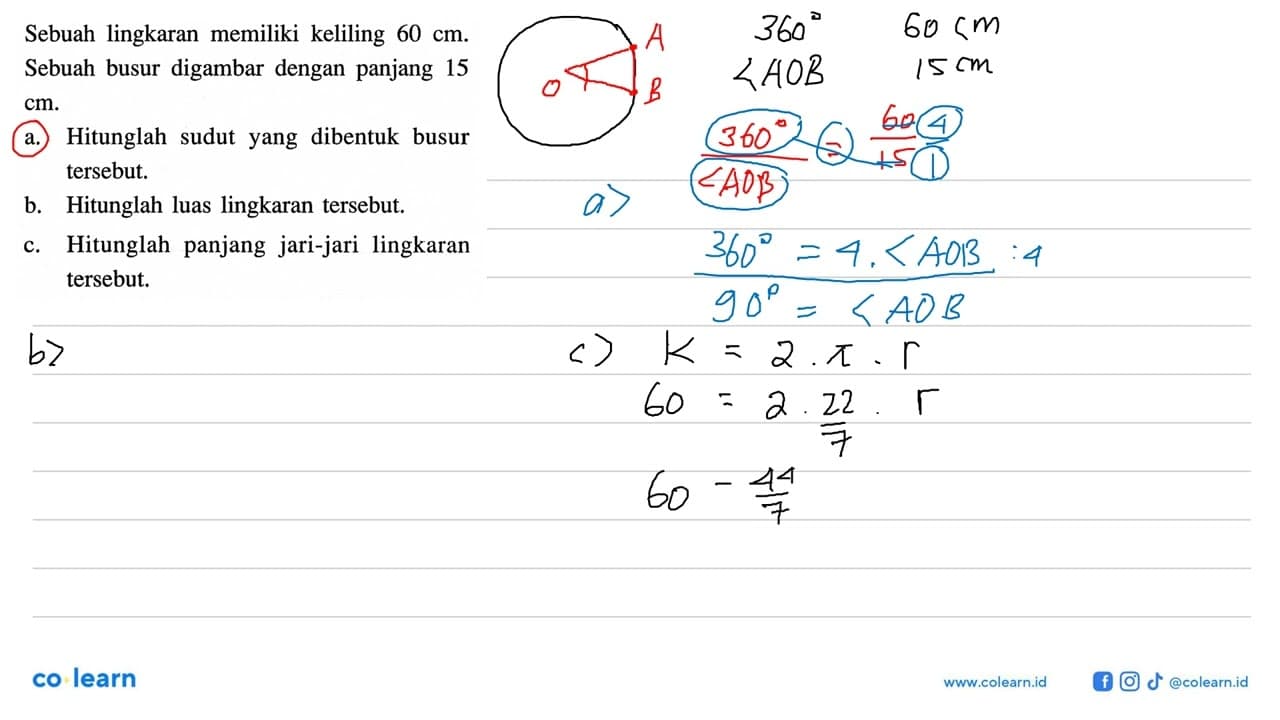 Sebuah lingkaran memiliki keliling 60 cm.
Sebuah busur digambar dengan panjang 15
cm.
a. Hitunglah sudut yang dibentuk busur
tersebut.
b. Hitunglah luas lingkaran tersebut.
c. Hitunglah panjang jari-jari lingkaran
tersebut.
A
O
B
360° 60 cm
<AOB 15 cm
a>
360° = 60 4
<AOB 15 1
360° = 4. <AOB :4
90° = <AOB
b>
c) K = 2 . π . r
60 = 2 . 22/7 . r
60 - 44/7
co learn
www.colearn.id
@colearn.id